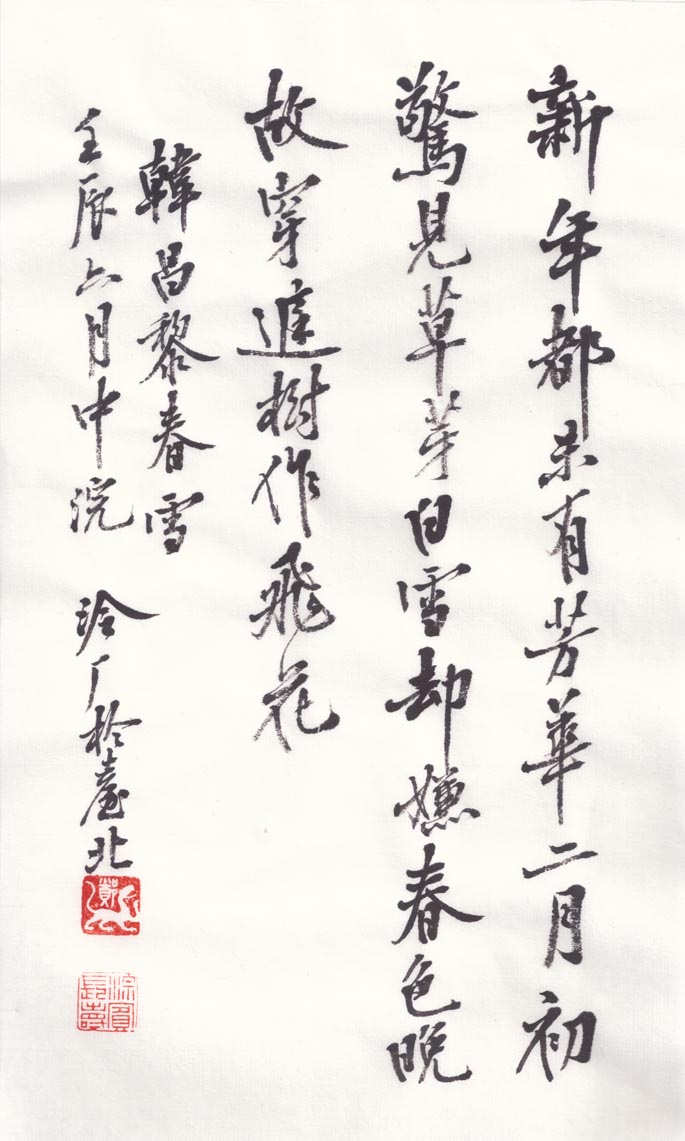 新年都未有芳華二月初
驚見草芽白雪却嫌春色晚
故穿庭樹作飛花
韓昌黎春雪
壬辰六月中浣 厂於臺北